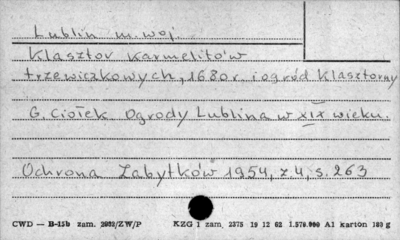 Lublin m. woj.
Klasztor Karmelitów
trzewiczkowych, 1680 r. i ogród klasztorny
G. Ciołek Ogrody Lublina w XIX wieku.
Ochrona Zabytków 1954, z 4, s. 263
CWD — B-15b zam. 2092/ZW/P KZG 1 zam. 2375 19 12 62 1.570.000 A1 karton 180 g